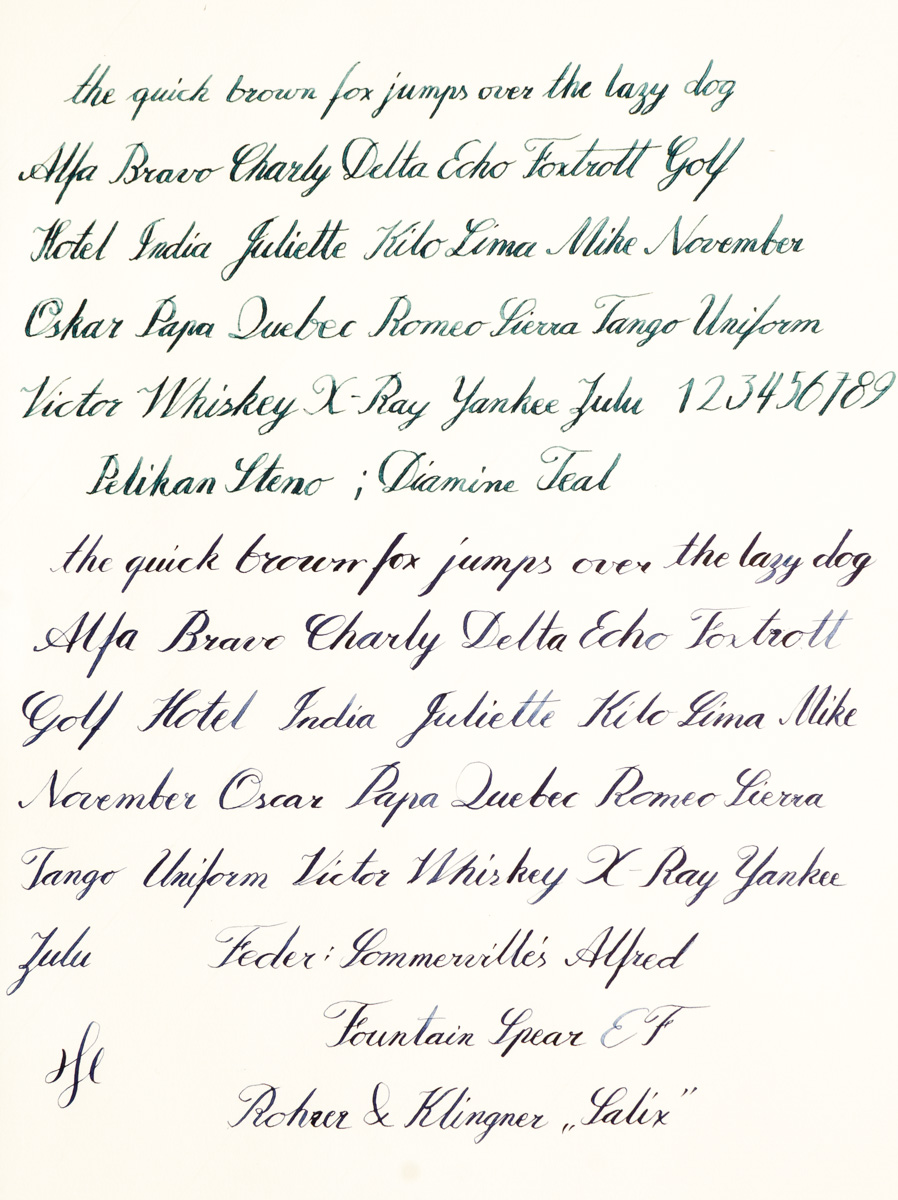 the quick brown fox jumps over the lazy dog
Alfa Bravo Charly Delta Echo Foxtrott Golf
Hotel India Juliette Kilo Lima Mike November
Oskar Papa Quebec Romeo Sierra Tango Uniform
Victor Whiskey X-Ray Yankee Zulu 123456789
Pelikan Steno ; Diamine Teal
the quick brown fox jumps over the lazy dog
Alfa Bravo Charly Delta Echo Foxtrott
Golf Hotel India Juliette Kilo Lima Mike
November Oscar Papa Quebec Romeo Sierra
Tango Uniform Victor Whiskey X-Ray Yankee
Zulu Feder: Sommerville's Alfred
Fountain Spear EF
Rohrer & Klingner „Salix”